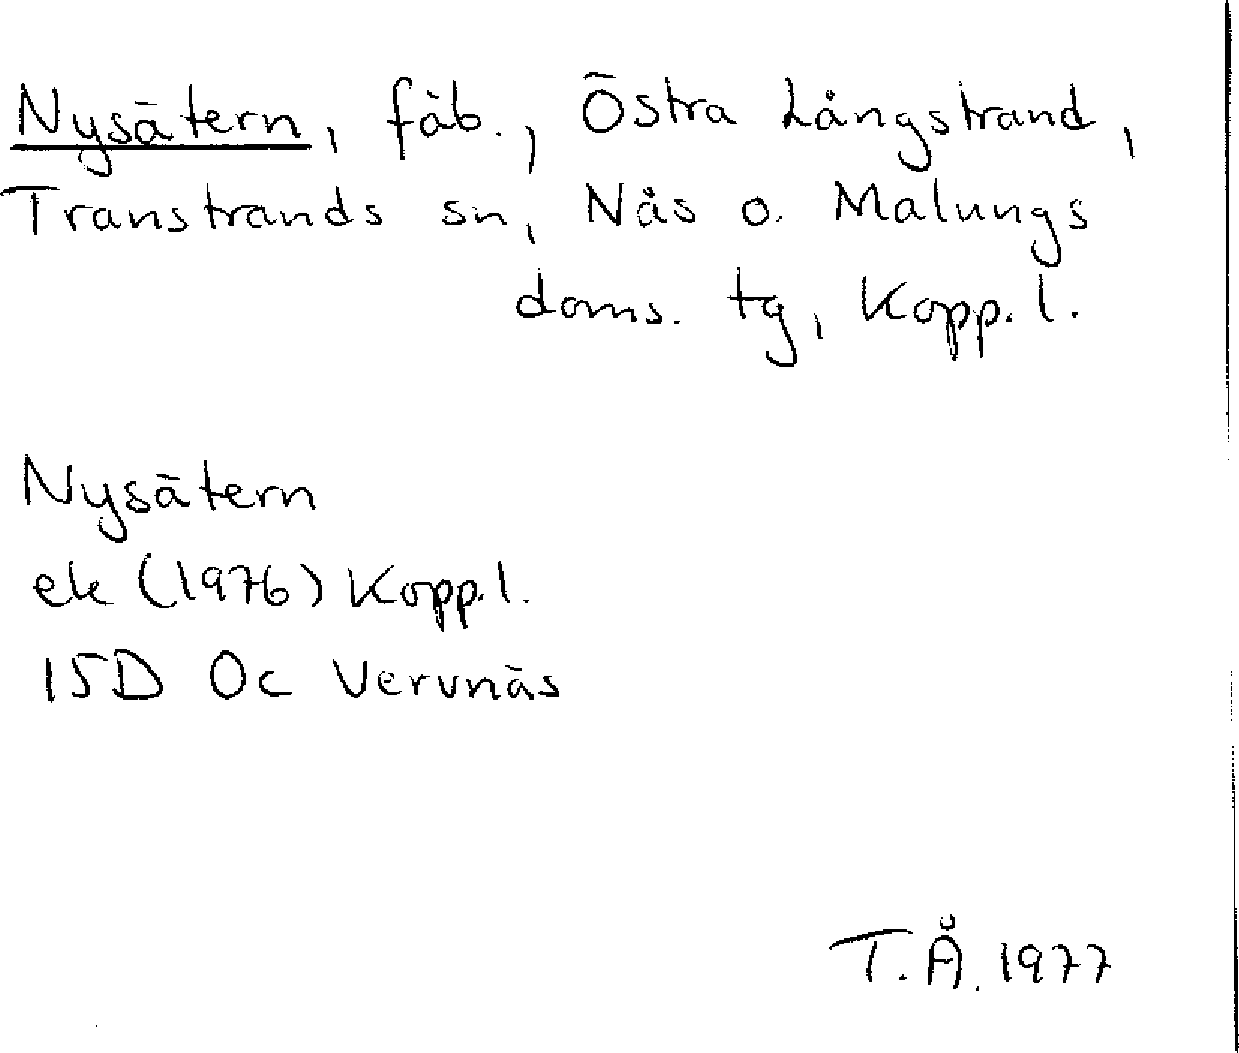 Nysätern, fäb., Östra Långstrand,
Transtrands sn, Nås o. Malungs
doms. tg, Kopp. l.
Nysätern
ek (1976) Kopp. l.
15D 0c Vervnäs
T.Å. 1977